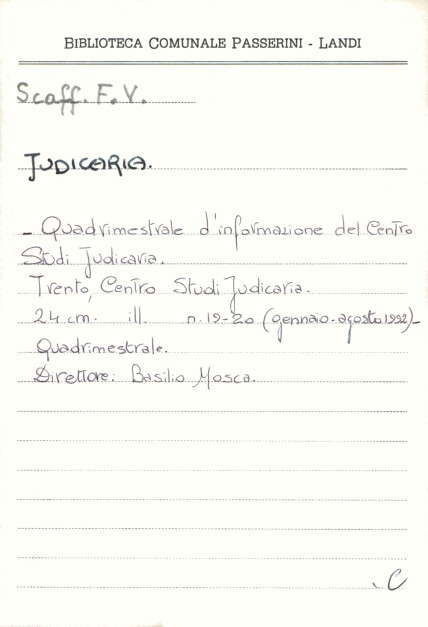 BIBLIOTECA COMUNALE PASSERINI - LANDI
Scaff. F.V.
JUDICARIA.
- Quadrimestrale d'informazione del Centro
Studi Judicaria.
Trento, Centro Studi Judicaria.
24 cm. ill. n. 19-20 (gennaio-agosto 1992)-
Quadrimestrale.
Direttore: Basilio Mosca.
C